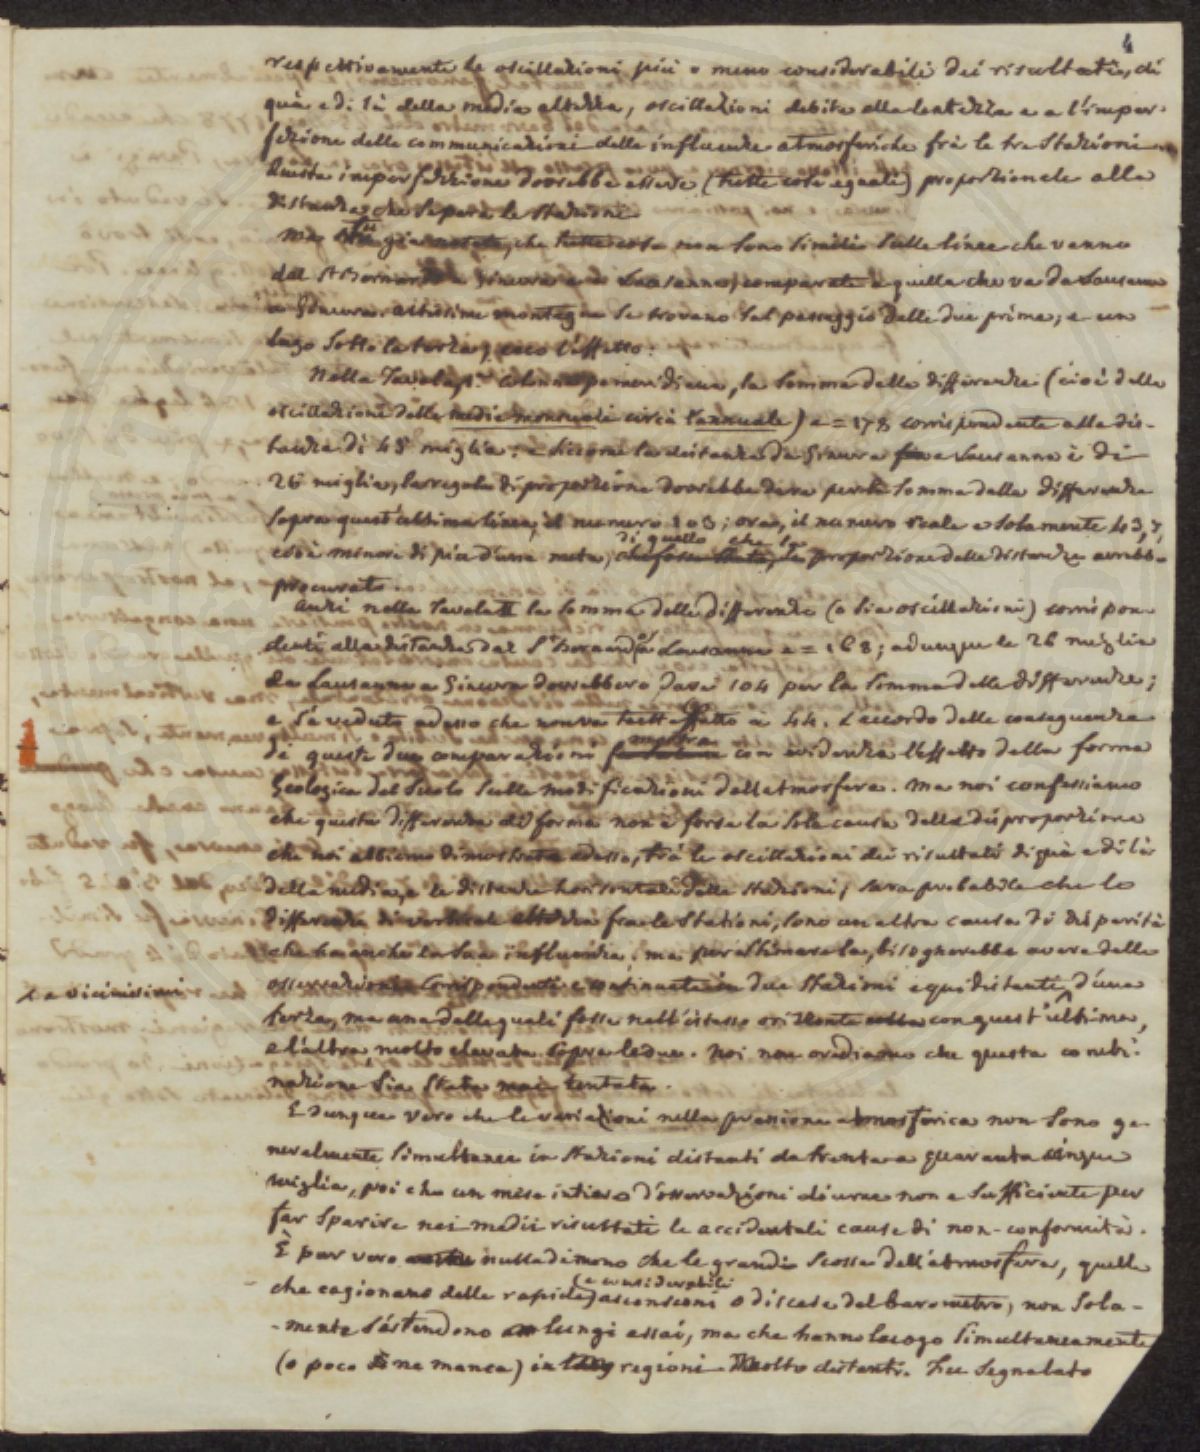 4
respettivamente le oscillazioni più o meno considerabili dei risultati, di
quà e di là della media altezza, oscillazioni debite alla lentezza e a l'imper-
fezione delle communicazioni delle influenze atmosferiche frà le tre Stazioni
Questa imperfezzione dovrebbe essere (tutte cose eguali) proporzionale alla
distanza che separa le stazioni.
già notato, che tutte cose non sono simili sulle linee che vanno
dal St Bernardo a Ginevra e a Lausanna, comparate a quella che va da Lausanna
a Ginevra. Altissime montagne se trovano sul passaggio delle due prime, e un
lago sotto la terza; ecco l'effetto.
Nella Tavola colonna pomeridiana, la somma delle differenze (cioè delle
oscillazioni delle medie mensuali circà l'annuale) e = 178 corrispondente alla dis-
tanza di 45 miglia: e siccome la distanza da Ginevra a Lausanna è di
26 miglia, la regola di proporzione dovrebbe dare per la somma delle differenze
sopra quest'ultima linea, il numero 103; ora, il numero reale e solamente 43,7
cioè minore di più d'una metà, di quello che la proporzione delle distanze avrebbe
procurato.
Anzi nella Tavola II la somma delle differenze (o sia oscillazioni) corrispon-
denti alla distanza dal St Bernardo a Lausanna e = 168; adunque le 26 miglia
da Lausanna a Ginevra dovrebbero dare 104 per la somma delle differenze;
e s'à veduto adesso che non va a 44. L'accordo delle conseguenze
di queste due comparazioni mostra con evidenza l'effetto della forma
Geologica del Suolo sulle modificazioni dell'atmosfera. Ma noi confessiamo
che questa differenza di forma non è forse la sola causa della disproporzione
che noi abbiamo dimostrata adesso, frà le oscillazioni dei risultati di quà e di là
della media, e le distanze horizontali delle stazioni; sara probabile che le
differenze di verticale altezza fra le Stationi, sono un altra causa di disparità
che ha anche la sua influenza; ma per stimarela, bisognerebbe avere delle
osservazioni corrispondenti e continuate in due Stazioni equidistanti, d'una
e vicinissimi
terza, ma una delle quali fosse nell'istesso orizzonte con quest'ultima,
e l'altra, molto elevata sopra le due. Noi non crediamo che questa combi-
nazione sia stata mai tentata.
E dunque vero che le variazioni nella pressione atmosferica non sono ge-
neralmente simultanee in stazioni distanti da trenta a quaranta cinque
miglia, poi che un mese intiero d'osservazioni diurne non e sufficiente per
far sparire nei medii risultati le accidentali cause di non-conformità.
È pur vero nulladimeno che le grandi scosse dell'atmosfera, quelle
che cagionano delle rapide (e considerabili) ascensioni o discese del barometro, non sola-
-mente s'estendono lungi assai, ma che hanno luogo simultaneamente
(o poco se ne manca) in regioni molto distanti. Fu segnalato